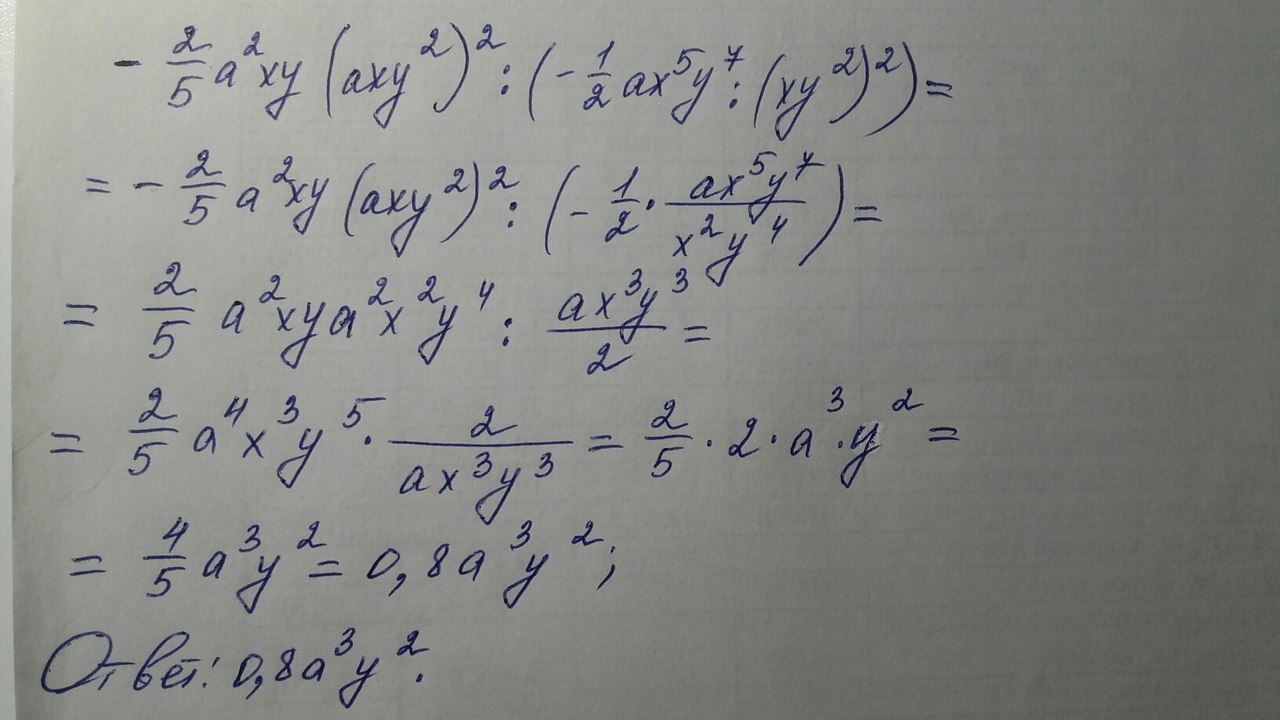 - 2/5 a²xy (axy²)² : (- 1/2 ax⁵y⁷ : (xy²)²) =
= - 2/5 a²xy (axy²)² : (- 1/2 · ax⁵y⁷/x²y⁴) =
= 2/5 a²xya²x²y⁴ : ax³y³/2 =
= 2/5 a⁴x³y⁵ · 2/ax³y³ = 2/5 · 2 · a³ · y² =
= 4/5 a³y² = 0,8a³y²;
Ответ: 0,8a³y².